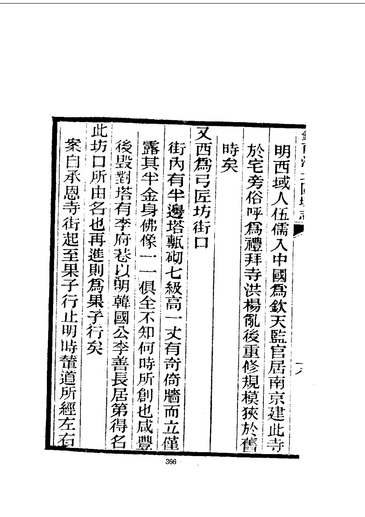 明西域人伍儒入中國爲欽天監官居南京建此寺
於宅旁俗呼爲禮拜寺洪楊亂後重修規模狹於舊
時矣
又西爲弓匠坊街口
街內有半邊塔甎砌七級高一丈有奇倚牆而立僅
露其半金身佛像一一俱全不知何時所創也咸豐
後毀對塔有李府巷以明韓國公李善長居第得名
此坊口所由名也再進則爲果子行矣
案自承恩寺街起至果子行止明時輦道所經左右
366